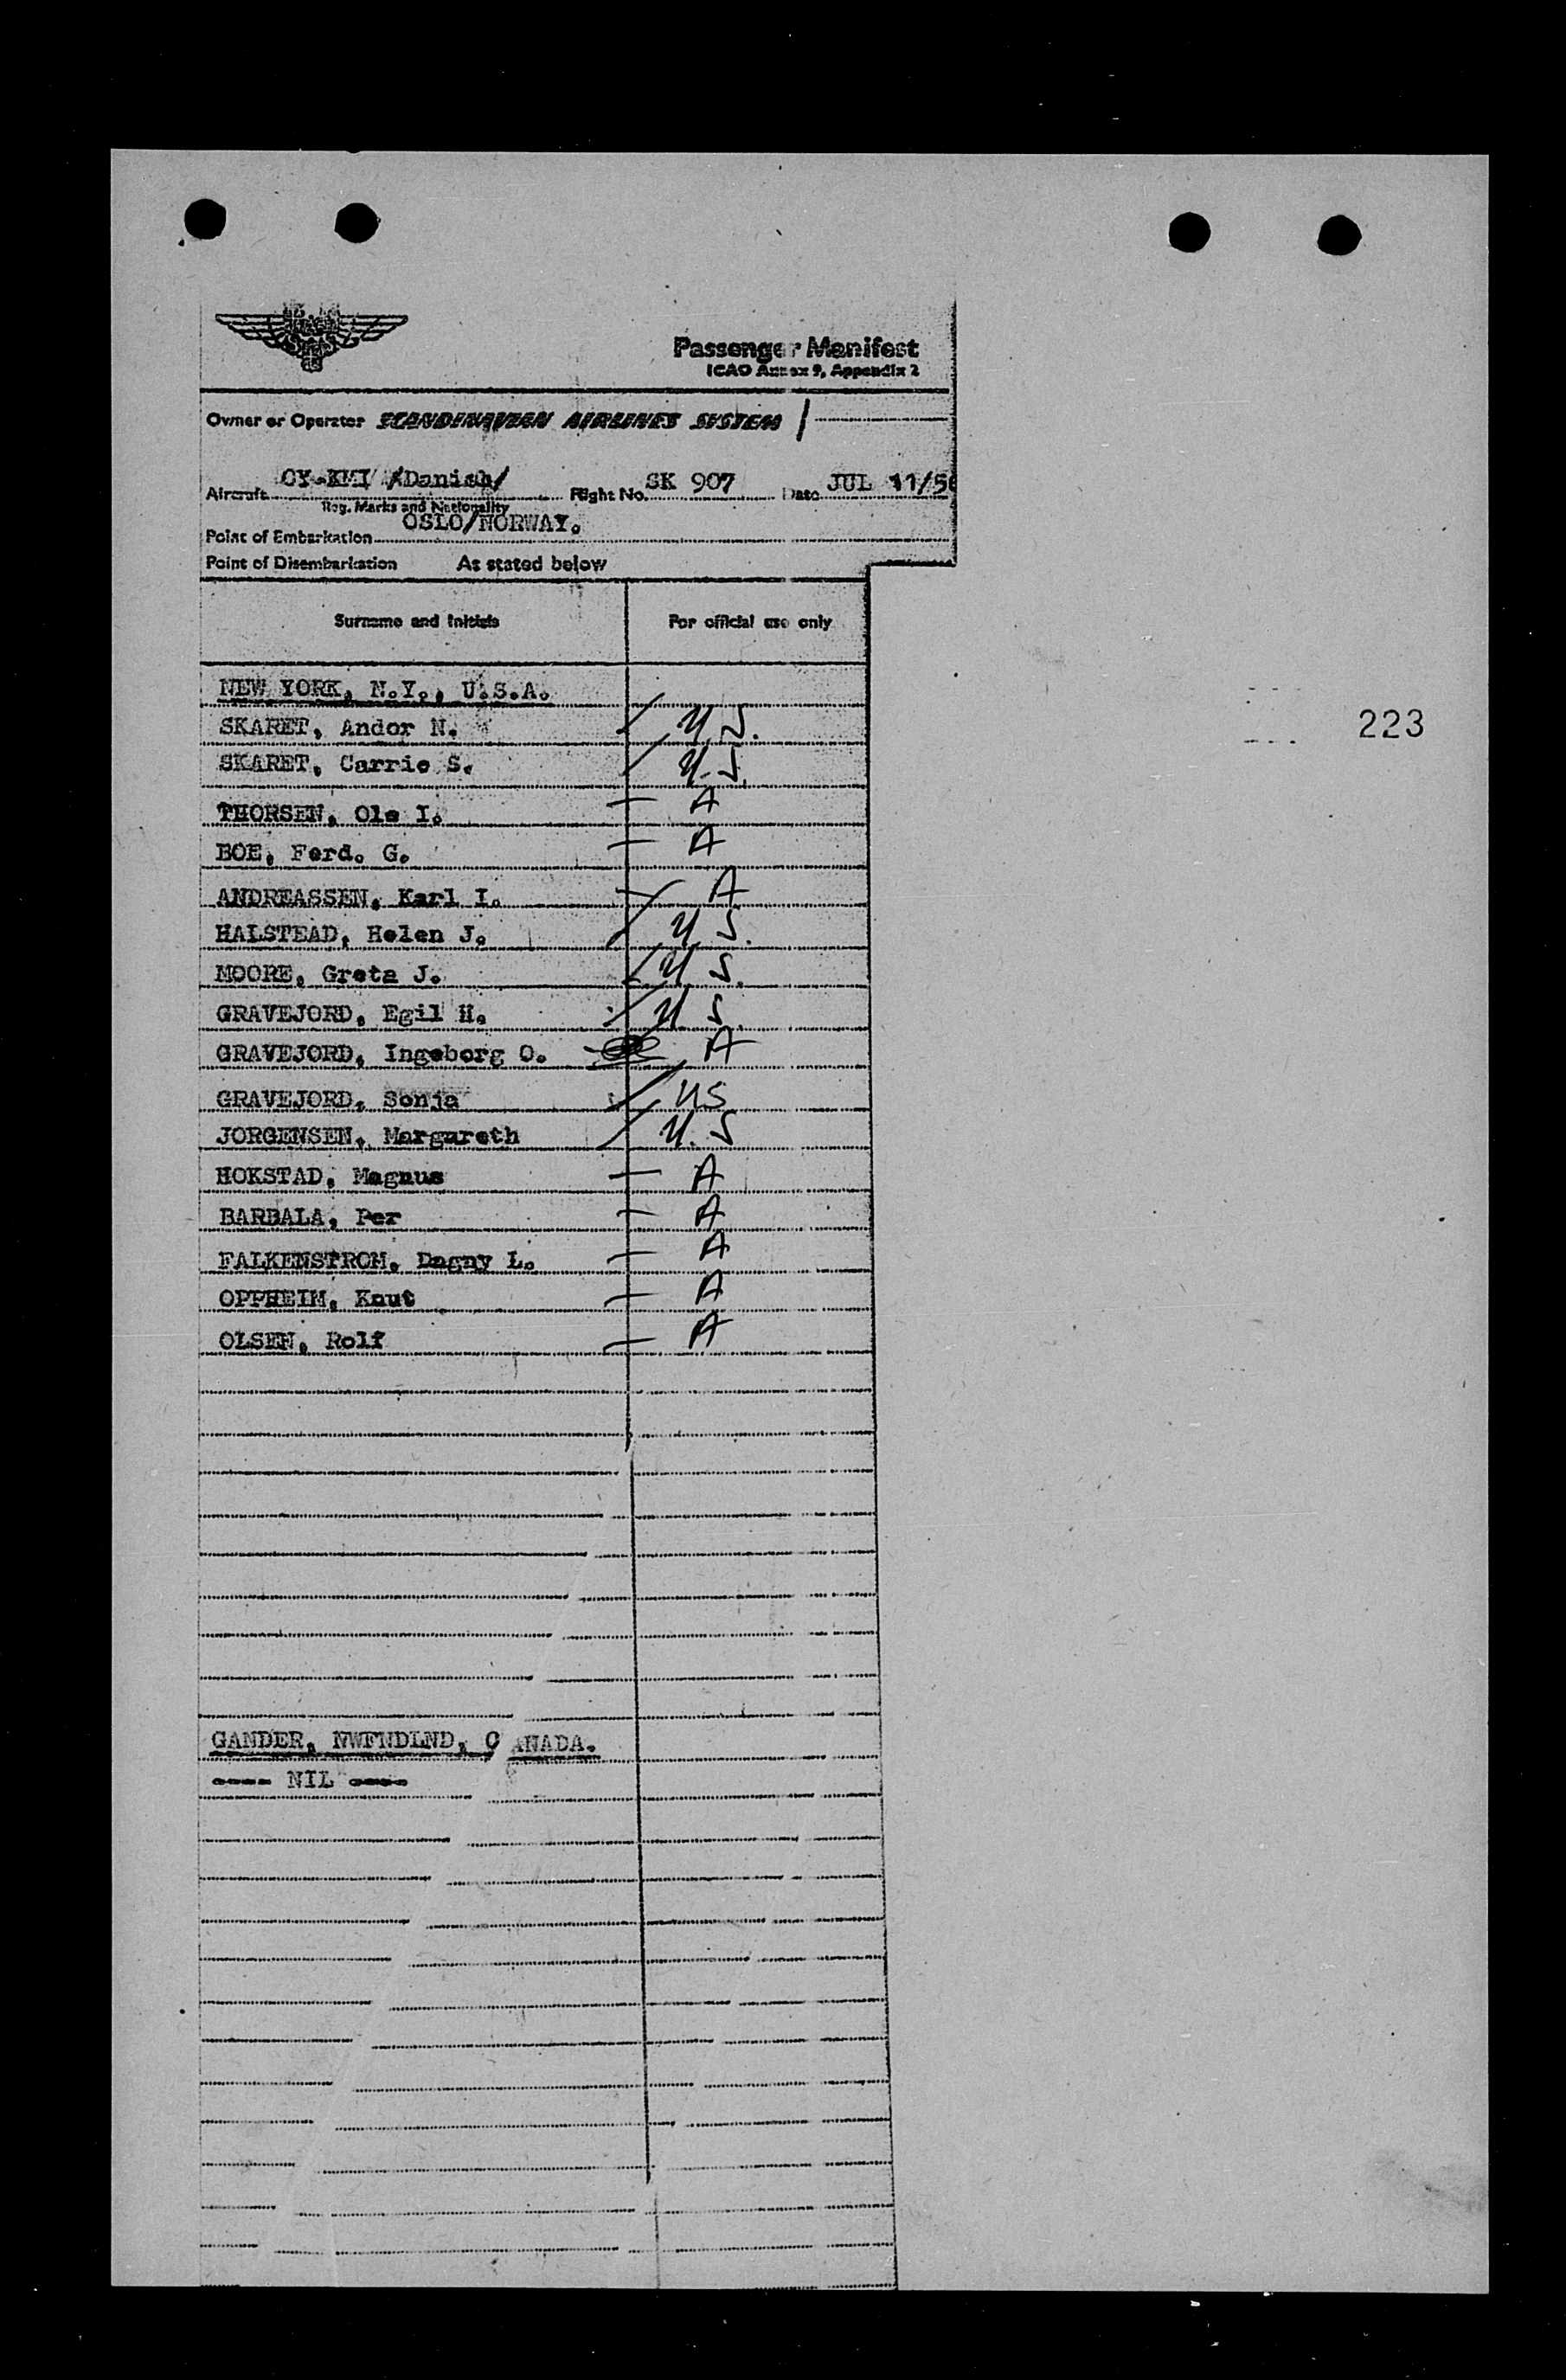 Passenger Manifest
ICAO Annex 9, Appendix 2
Owner or Operator SCANDINAVIAN AIRLINES SYSTEM
Aircraft OY-KMI /Danish/ Flight No. SK 907 Date JUL 11/5
Reg. Marks and Nationality
Point of Embarkation OSLO/NORWAY.
Point of Disembarkation As stated below
Surname and Initials For official use only
NEW YORK, N.Y., U.S.A.
SKARET, Andor N. U.S.
SKARET, Carrie S. U.S.
223
THORSEN, Ole I. A
BOE, Ferd. G. A
ANDREASSEN, Karl I. A
HALSTEAD, Helen J. U.S.
MOORE, Greta J. U.S.
GRAVEJORD, Egil H. U.S.
GRAVEJORD, Ingeborg O. A
GRAVEJORD, Sonja US
JORGENSEN, Margareth U.S
HOKSTAD, Magnus A
BARBALA, Per A
FALKENSTROM, Dagny L. A
OPPHEIM, Knut A
OLSEN, Rolf A
GANDER, NWFNDLND, CANADA.
---- NIL ----